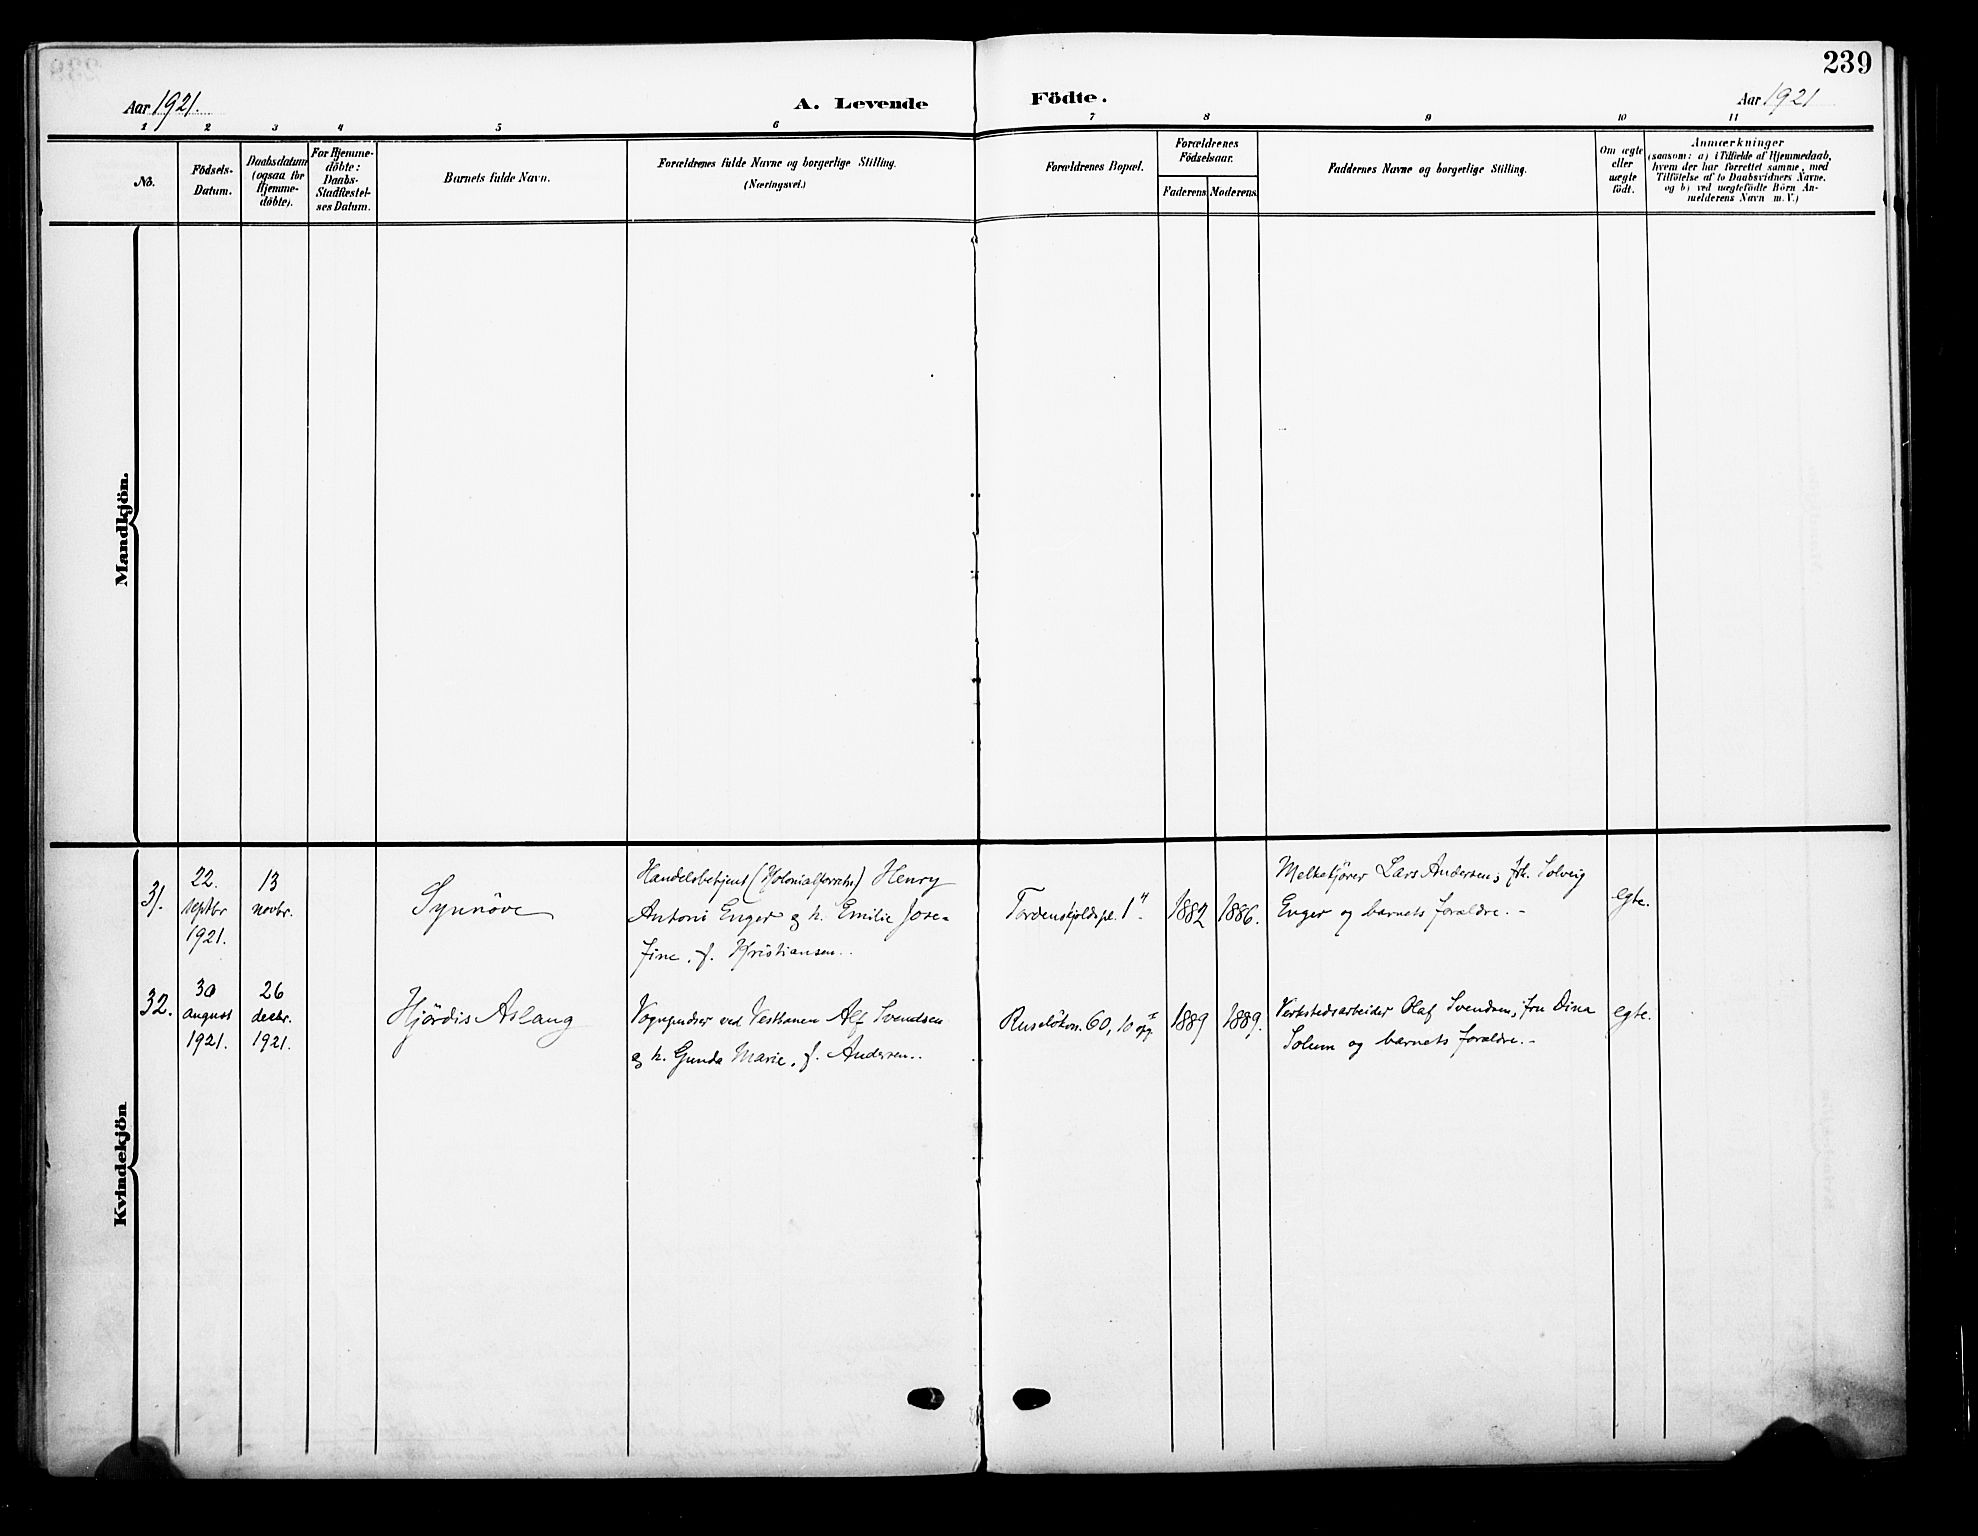 239
Aar 1921.
A. Levende
Födte.
Aar 1921
1 2 3 4 5 6 7 8 9 10 11
No.
Födsels-
Datum.
Daabsdatum
(ogsaa for
Hjemme-
döbte).
For Hjemme-
döbte:
Daabs-
Stadfæstel-
ses Datum.
Barnets fulde Navn.
Forældrenes fulde Navne og borgerlige Stilling.
(Næringsvei.)
Forældrenes Bopæl.
Forældrenes
Födselsaar.
Faderens
Moderens.
Faddernes Navne og borgerlige Stilling.
Om ægte
eller
uægte
födt.
Anmærkninger
(saasom: a) i Tilfælde af Hjemmedaab,
hvem der har forrettet samme, med
Tilföielse af to Daabsvidners Navne.
og b) ved uægtefödte Börn An-
melderens Navn m. V.)
Mandkjön.
31.
22.
septbr
1921.
13
novbr.
Synnöve
Handelsbetjent (Kolonialforretn) Henry
Antoni Enger og h. Emilie Jose-
fine, f. Kristiansen..
Tordenskjoldspl. 1
1882
1886.
Melkekjörer Lars Andersen; frk. Solveig
Enger og barnets forældre. -
egte.
32.
30
august
1921.
26
decbr.
1921.
Hjördis Aslaug
Vognpudser ved Vestbanen Alf Svendsen
og h. Gunda Marie, f. Andersen..
Ruselökvn. 60, 10 opg
1889
1889.
Verkstedsarbeider Olaf Svendsen; fru Dina
Solum og barnets forældre. -
egte.
Kvindekjön